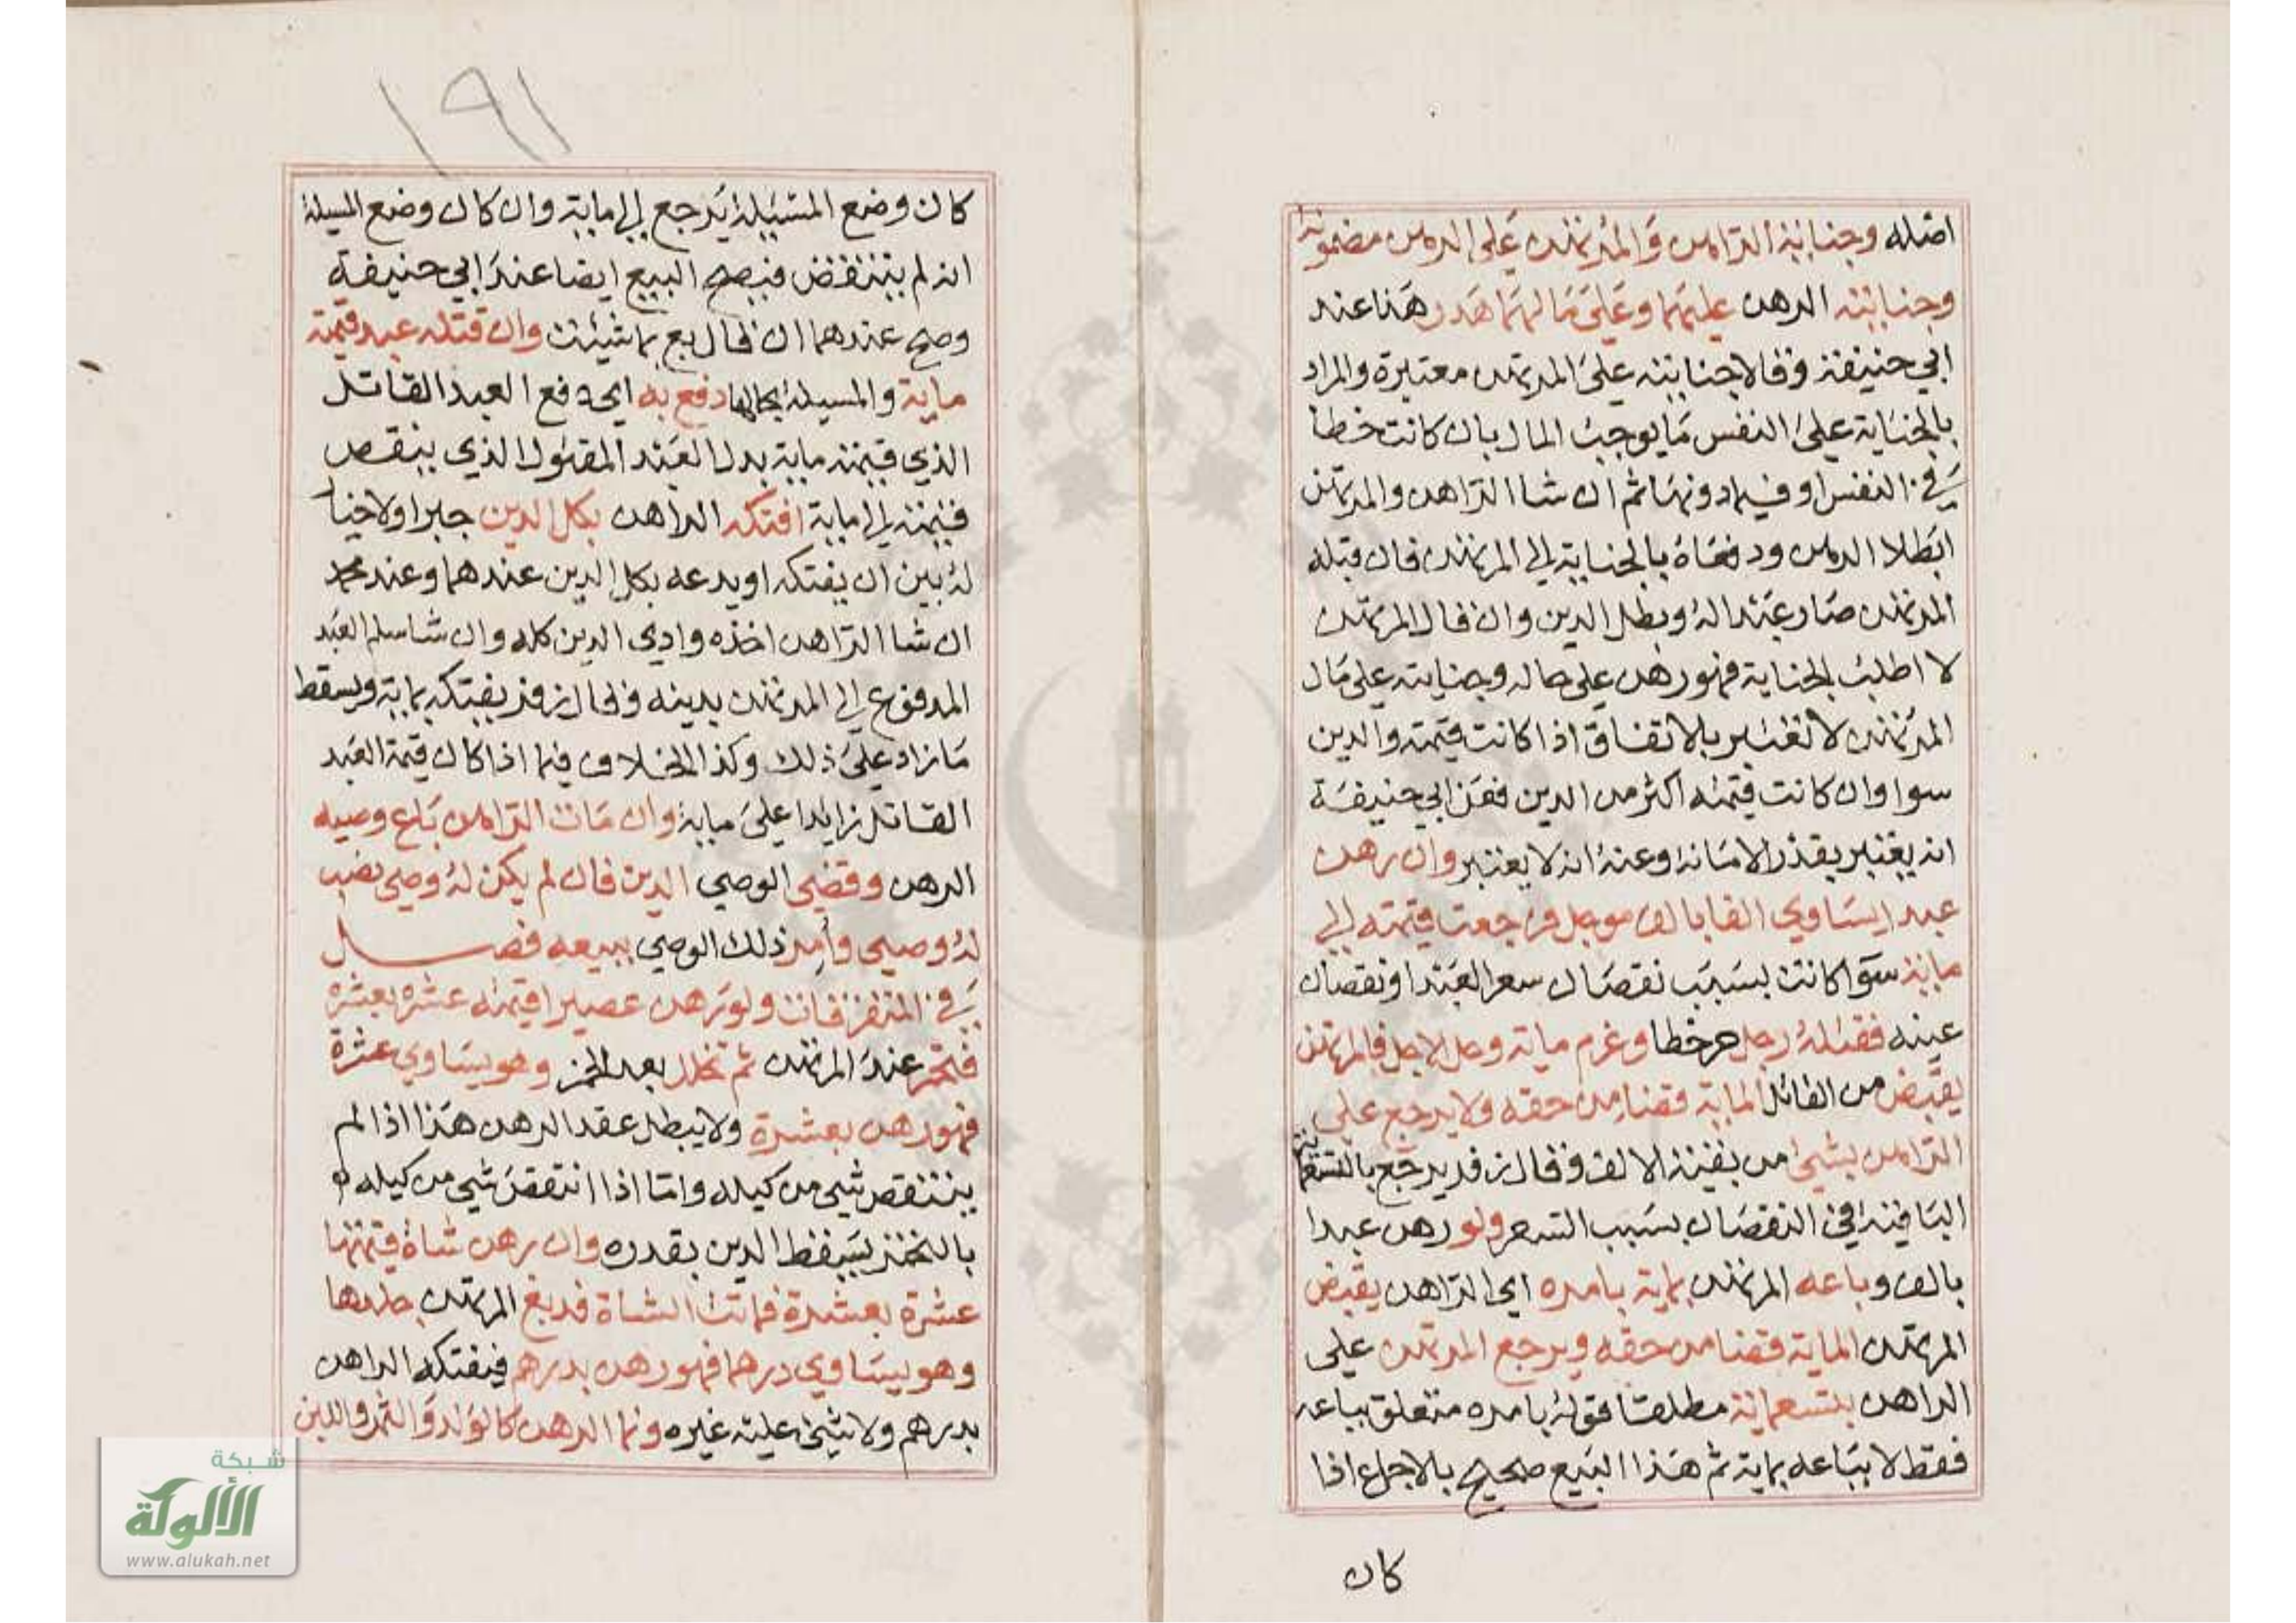 اصله وجناية الراهن والمرتهن على الرهن مضمونة
وجنايته الرهن عليهما وعلى مالهما هدر هذا عند
ابي حنيفة وقالا جنايته على المرتهن معتبرة والمراد
بالجناية على النفس ما يوجب المال بان كانت خطا
في النفس او فيما دونها ثم ان شا الراهن والمرتهن
ابطلا الرهن ودفعاه بالجناية الى المرتهن فان قبله
المرتهن صار عبدا له وبطل الدين وان قال المرتهن
لا اطلب الجناية فهو رهن على حاله وجنايته على مال
المرتهن لا تعتبر بالاتفاق اذا كانت قيمته والدين
سوا وان كانت قيمته اكثر من الدين فعن ابي حنيفة
انه يعتبر بقدر الامانة وعنه انه لا يعتبر وان رهن
عبدا يساوي الفا بالف موجل فرجعت قيمته الى
ماية سوا كانت بسبب نقصان سعر العبد او نقصان
عينه فقتله رجل حر خطا وغرم ماية وحل الاجل فالمرتهن
يقبض من القاتل الماية قضا من حقه ولا يرجع على
الراهن بشي من بقية الالف وقال زفر يرجع بالتسعماية
الباقية في النقصان بسبب السعر ولو رهن عبدا
بالف وباعه المرتهن بماية بامره اي الراهن يقبض
المرتهن الماية قضا من حقه ويرجع المرتهن على
الراهن بتسعماية مطلقا قوله بامره متعلق بباعه
فقط لا بباعه بماية ثم هذا البيع صحيح بالاجماع اذا
كان
١٩١
كان وضع المسئيلة يرجع الى ماية وان كان وضع المسيلة
انه لم ينتقض فيصح البيع ايضا عند ابي حنيفة
وصح عندهما ان قال بع بما شيئت وان قتله عبد قيمته
ماية والمسيلة بحالها دفع به اي دفع العبد القاتل
الذي قيمته ماية بدل العبد المقتول الذي ينقص
قيمته الى ماية افتكه الراهن بكل الدين جبرا ولا خيا
له بين ان يفتكه او يدعه بكل الدين عندهما وعند محمد
ان شا الراهن اخذه وادي الدين كله وان شا سلم العبد
المدفوع الى المرتهن بدينه وقال زفر يفتكه بماية ويسقط
ما زاد على ذلك وكذا الخلاف فيما اذا كان قيمة العبد
القاتل زايدا على ماية وان مات الراهن باع وصيه
الرهن وقضي الوصي الدين فان لم يكن له وصي نصب
له وصيي وامر ذلك الوصي ببيعه فصل
في المتفرقات ولو رهن عصيرا قيمته عشرة بعشرة
فتخمر عند المرتهن ثم تخلل بعد الخمر وهو يساوي عشرة
فهو رهن بعشرة ولا يبطل عقد الرهن هذا اذا لم
ينتقص شي من كيله واما اذا انتقص شي من كيله
بالتخمر يسقط الدين بقدره وان رهن شاة قيمتها
عشرة بعشرة فماتت الشاة فدبغ المرتهن جلدها
وهو يساوي درهما فهو رهن بدرهم فيفتكه الراهن
بدرهم ولا شي عليه غيره ونما الرهن كالولد والثمر واللبن
شبكة
الألوكة
www.alukah.net